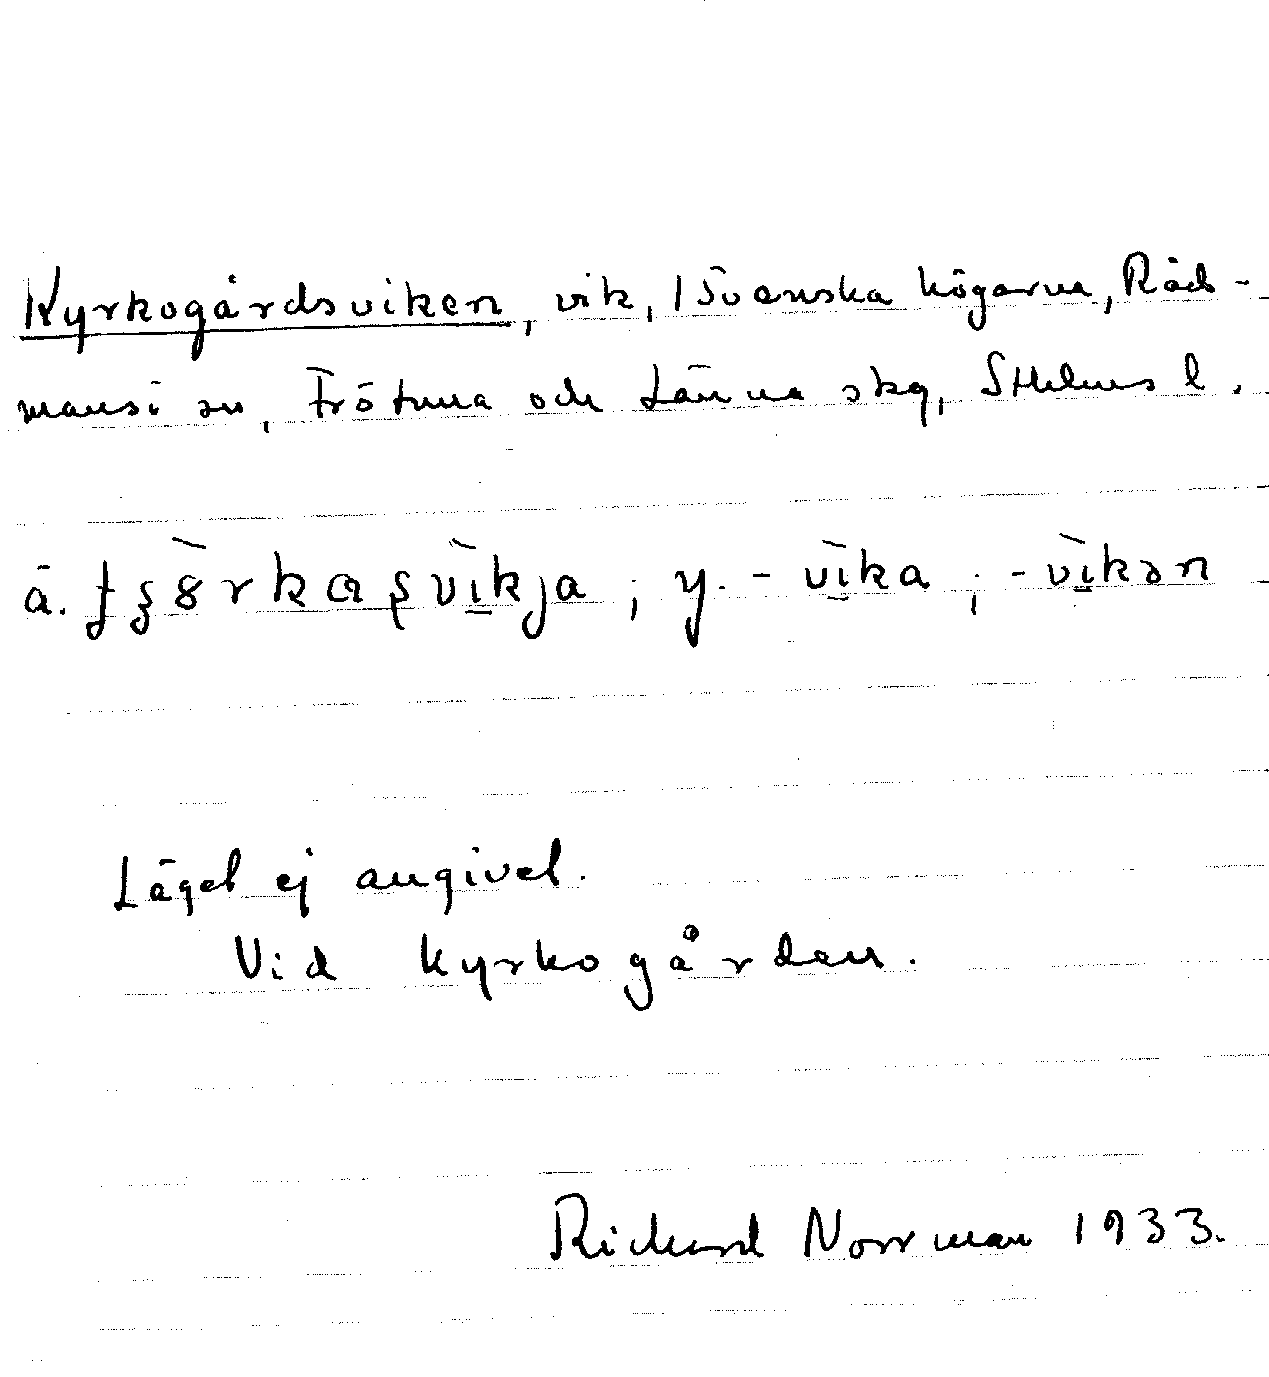 Kyrkogårdsviken, vik, Svenska högarna, Råd-
mansö sn, Frötuna och Länna skg, Sthlms l.
ä. ʃʂȣ̀rkaʂvìkja ; y. - vìka ; - vìkən
Läget ej angivet.
Vid kyrkogården.
Rickard Norrman 1933.